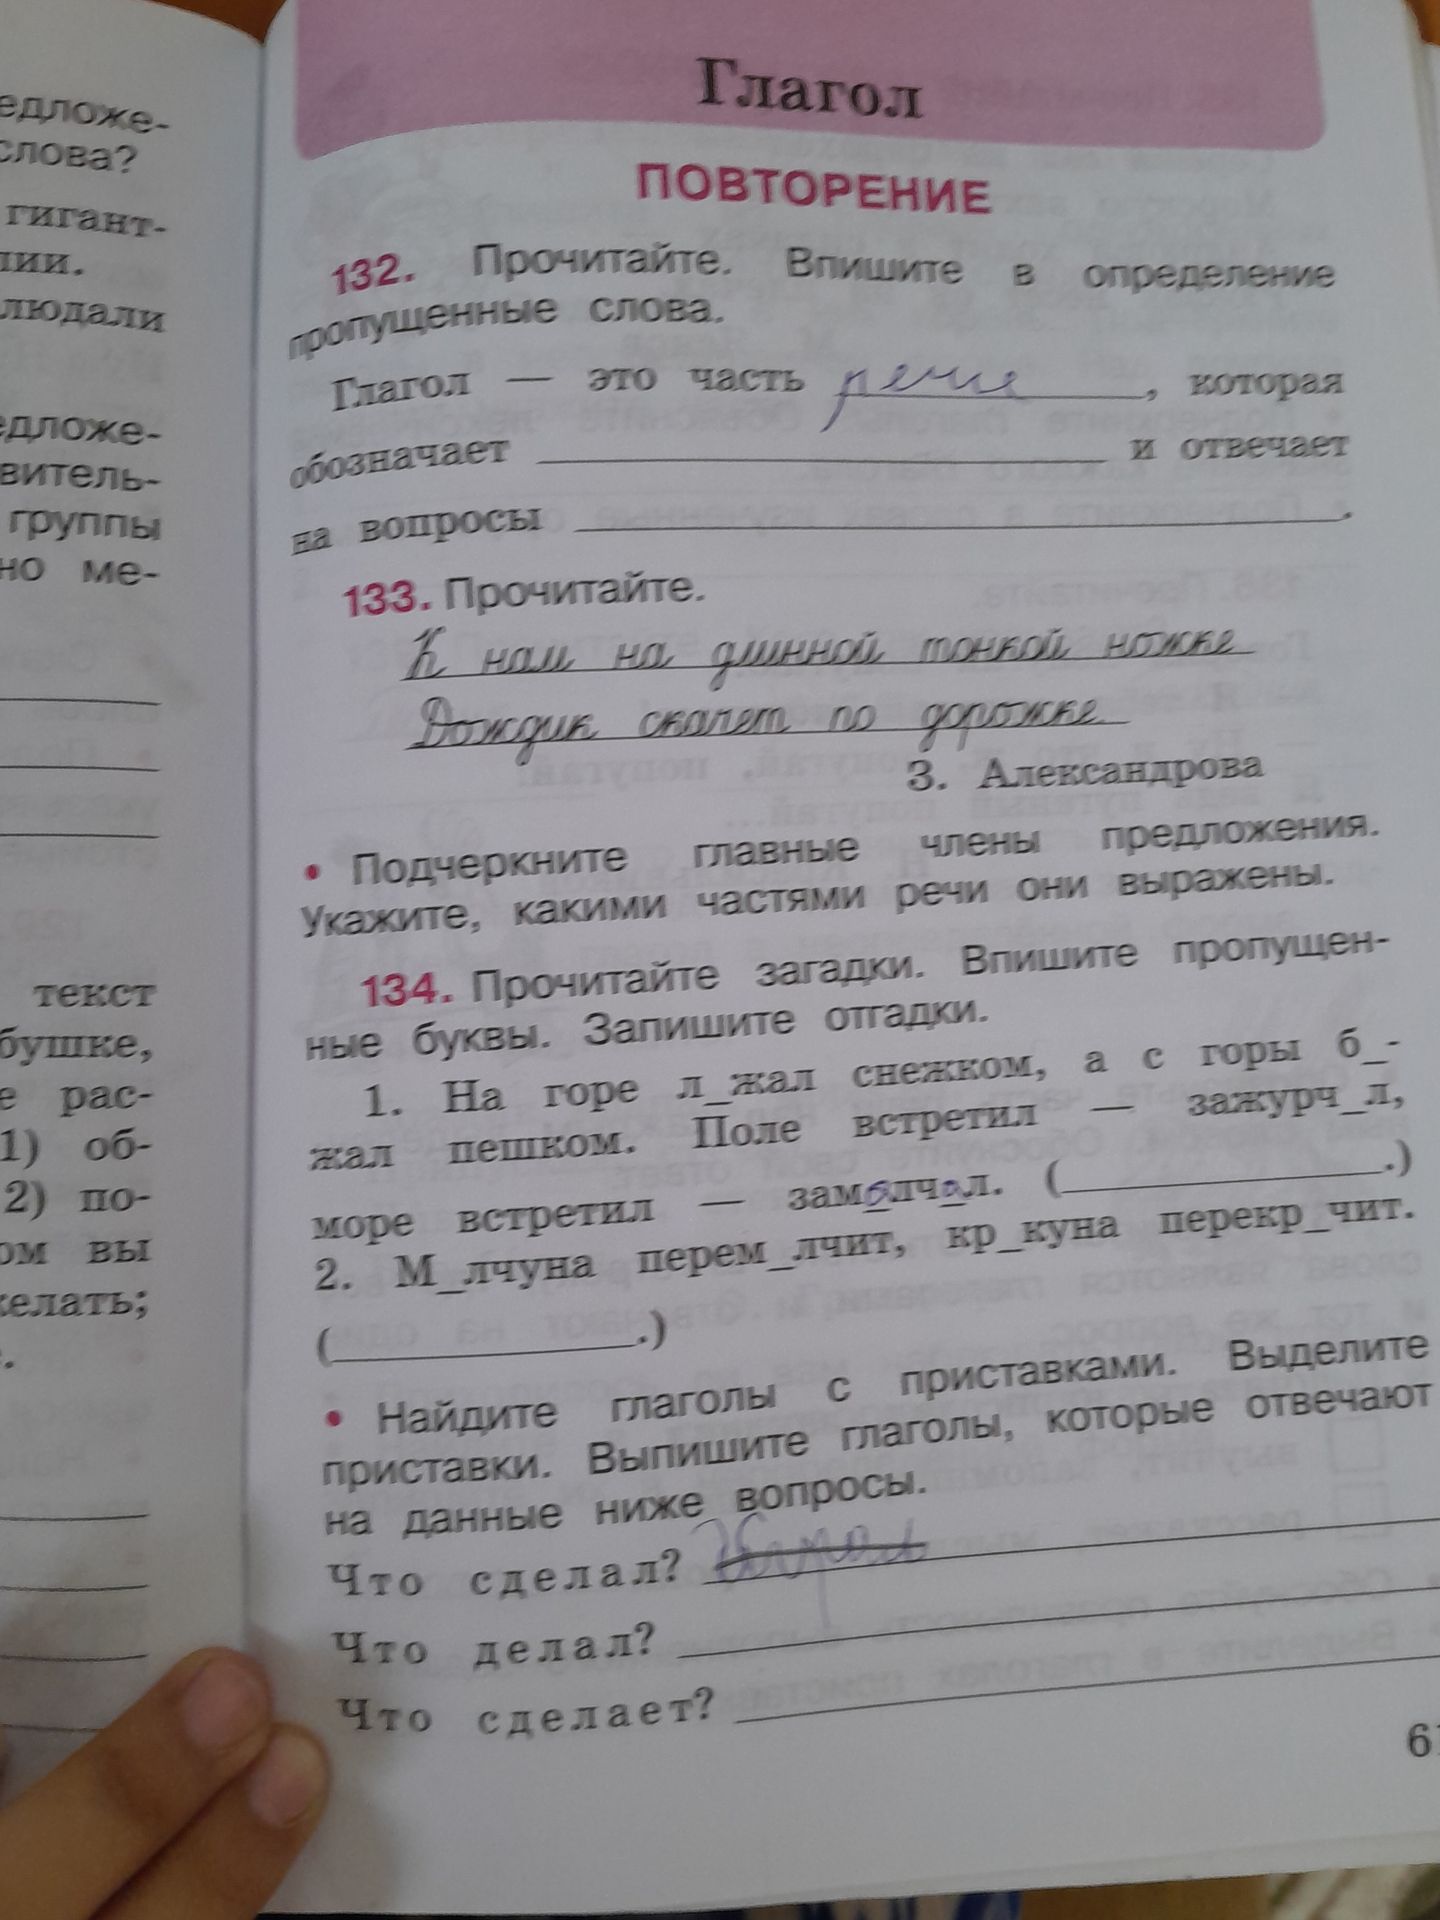 едложе-
слова?
гигант-
лии.
людали
едложе-
витель-
группы
но ме-
текст
бушке,
е рас-
1) об-
2) по-
ом вы
желать;
Глагол
ПОВТОРЕНИЕ
132. Прочитайте. Впишите в определение
пропущенные слова.
Глагол — это часть речи, которая
обозначает ______ и отвечает
на вопросы ______.
133. Прочитайте.
К нам на длинной тонкой ножке
Дождик скачет по дорожке
З. Александрова
• Подчеркните главные члены предложения.
Укажите, какими частями речи они выражены.
134. Прочитайте загадки. Впишите пропущен-
ные буквы. Запишите отгадки.
1. На горе л_жал снежком, а с горы б_-
жал пешком. Поле встретил — зажурч_л,
море встретил — замолчал. (______.)
2. М_лчуна перем_лчит, кр_куна перекр_чит.
(______.)
• Найдите глаголы с приставками. Выделите
приставки. Выпишите глаголы, которые отвечают
на данные ниже вопросы.
Что сделал?
Что делал?
Что сделает?